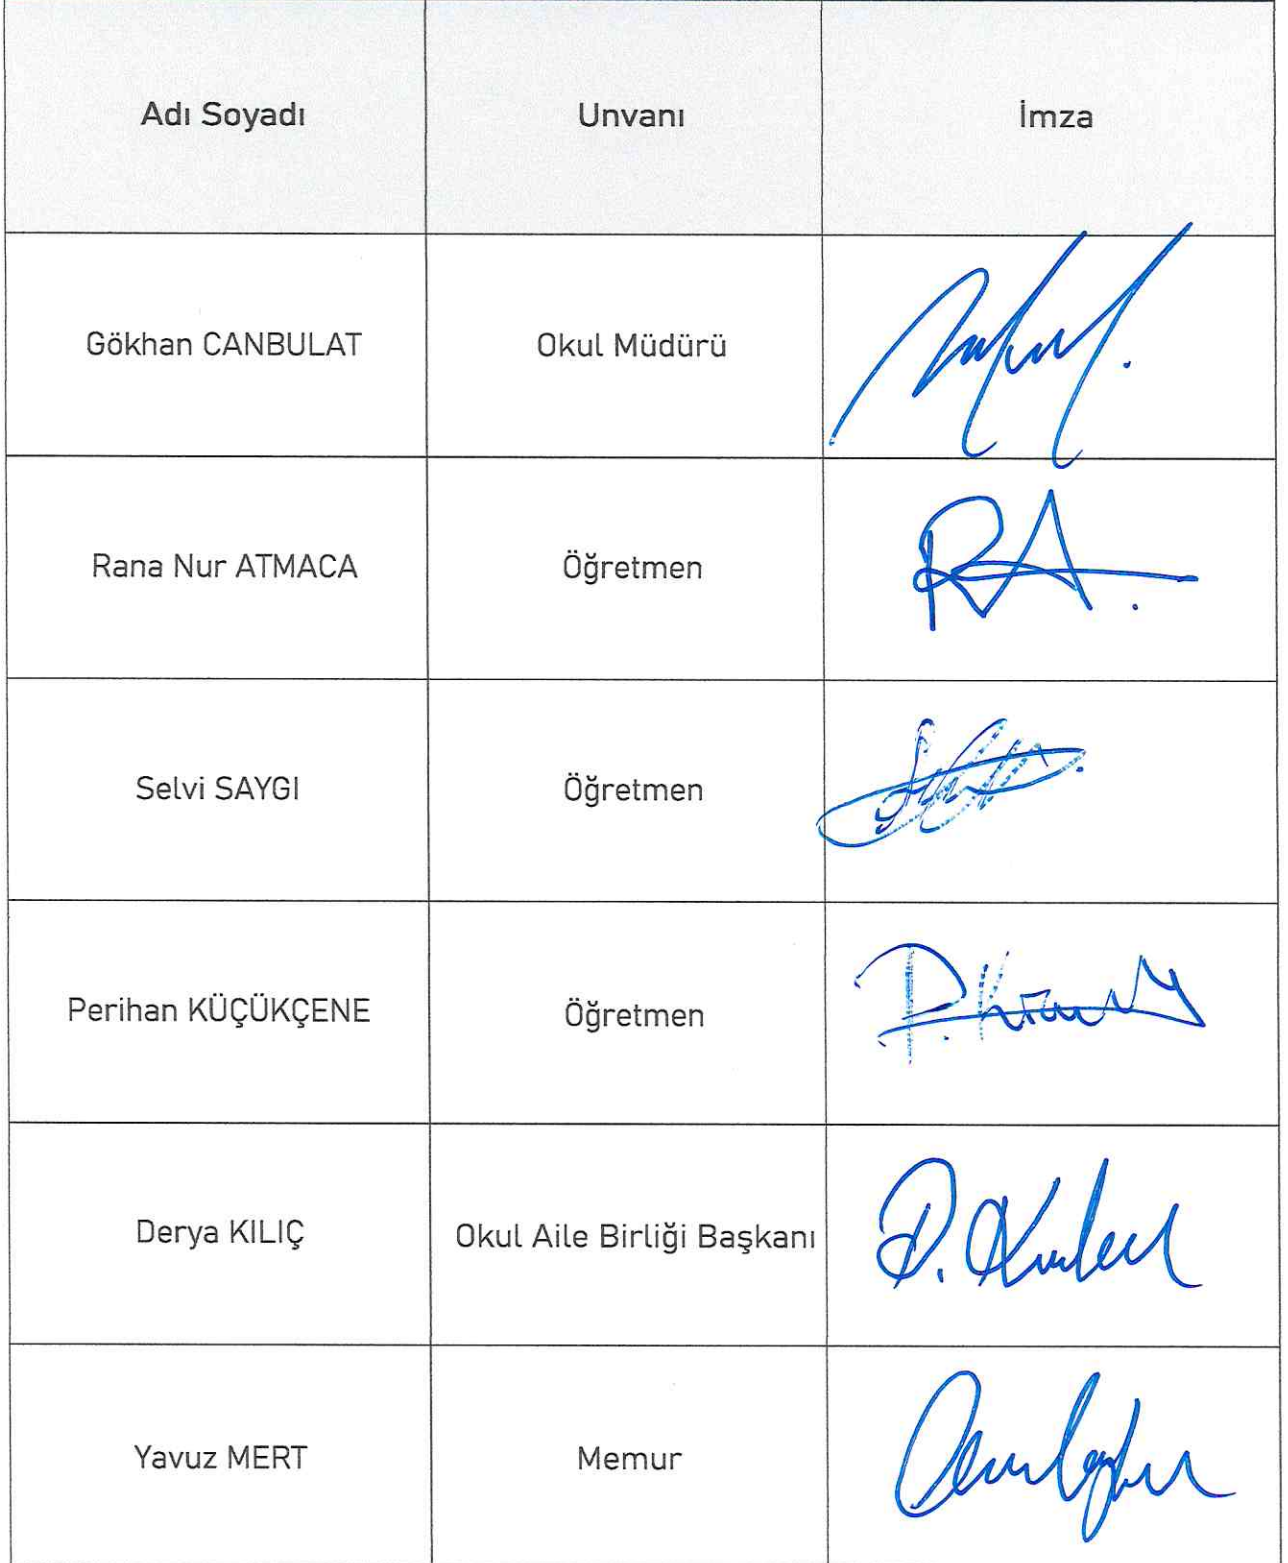 Adı Soyadı Unvanı İmza
Gökhan CANBULAT Okul Müdürü
Rana Nur ATMACA Öğretmen RA.
Selvi SAYGI Öğretmen
Perihan KÜÇÜKÇENE Öğretmen
Derya KILIÇ Okul Aile Birliği Başkanı
Yavuz MERT Memur